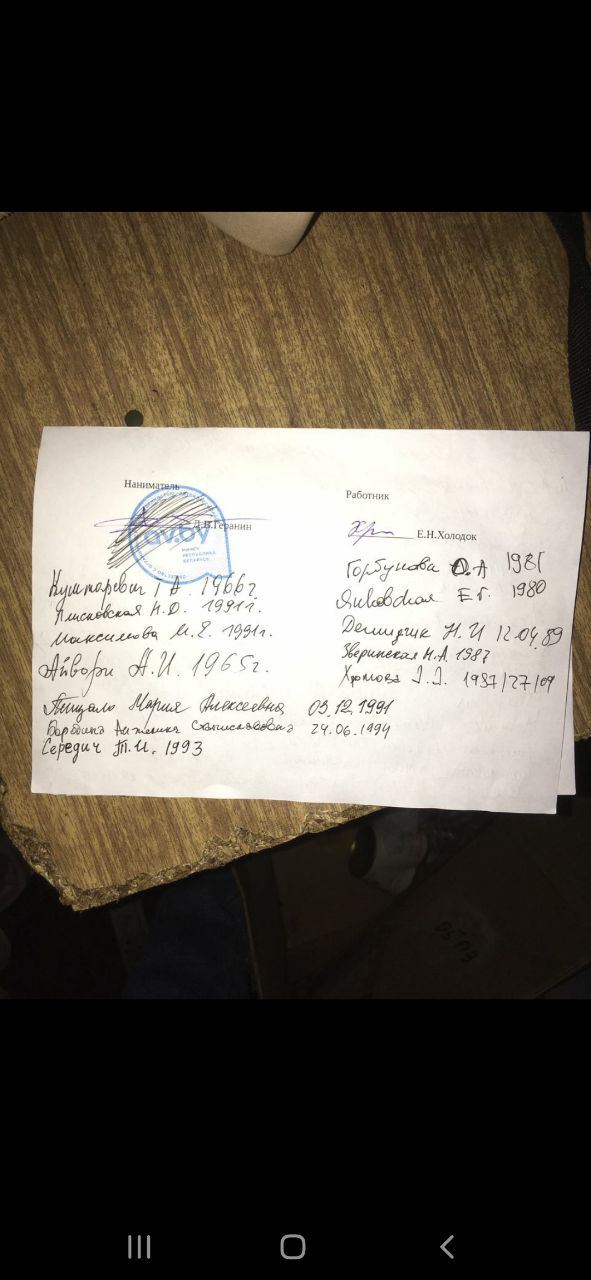 Наниматель
Д.В.Геранин
av.by
МИНСК
РЕСПУБЛИКА
БЕЛАРУСЬ
Кушнаревич Г А. 1966г.
Ямсковская Н.О. 1991г.
Максимова М.Е. 1991г.
Айвори А.И. 1965г.
Пищало Мария Алексеевна 03.12.1991
Станиславовна 24.06.1994
Середич Т.И. 1993
Работник
Е.Н.Холодок
Горбунова О.А 1981
Янковская Е Г. 1980
Демидчик Н.И 12.04.89
Зверинская Н.А. 1987
Хромова 1987/27/09